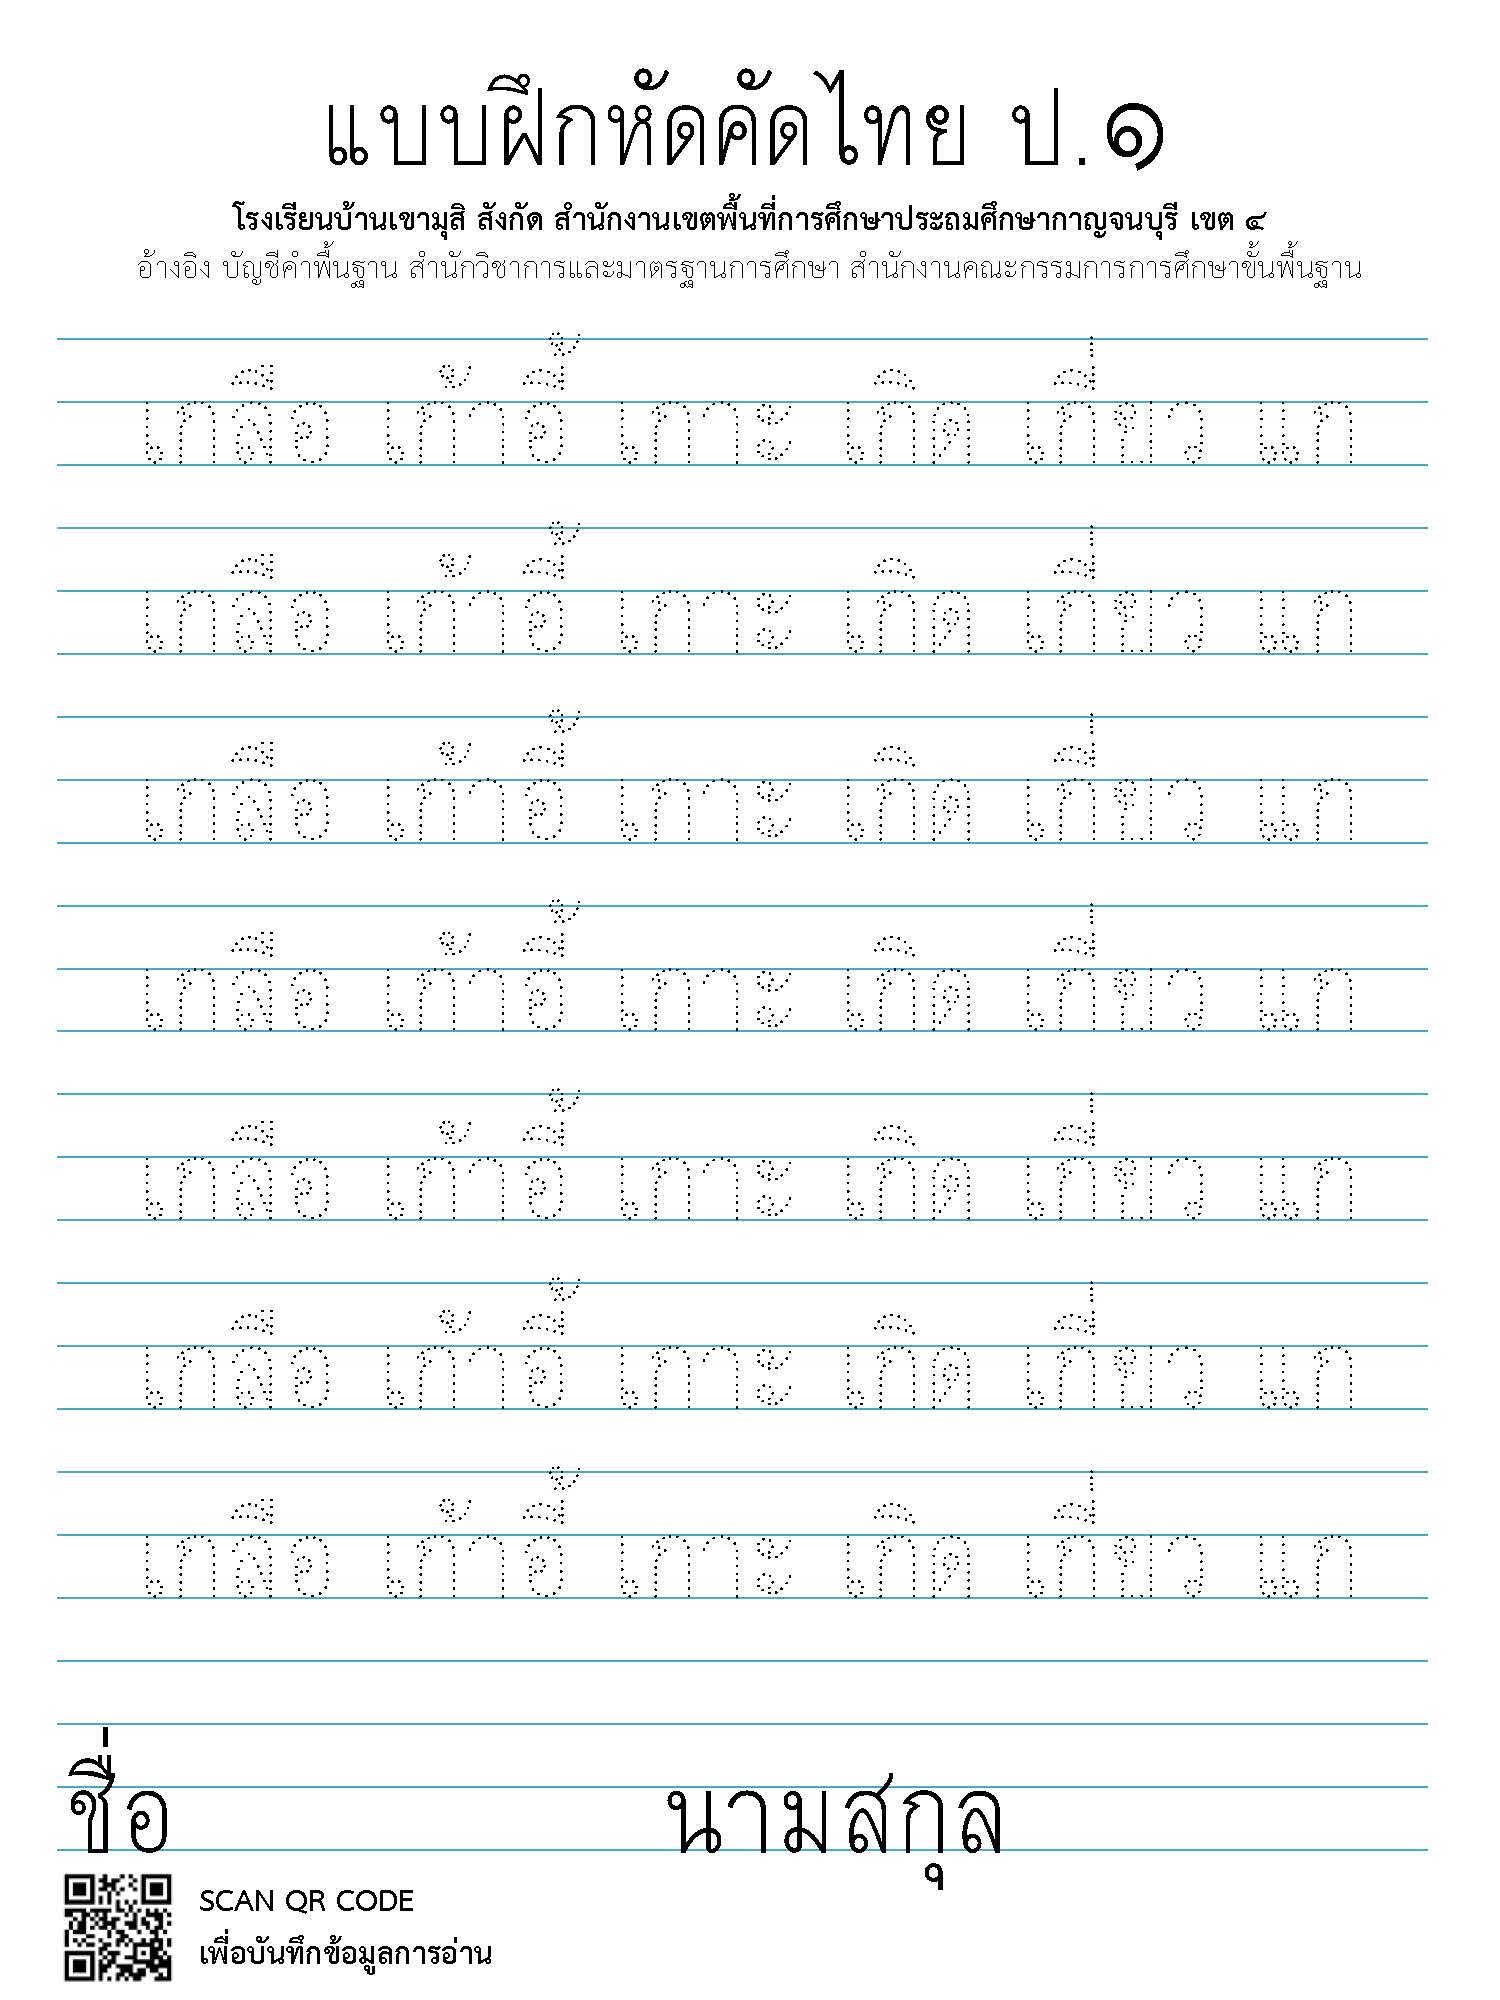 แบบฝึกหัดคัดไทย ป.๑
โรงเรียนบ้านเขามุสิ สังกัด สำนักงานเขตพื้นที่การศึกษาประถมศึกษากาญจนบุรี เขต ๔
อ้างอิง บัญชีคำพื้นฐาน สำนักวิชาการและมาตรฐานการศึกษา สำนักงานคณะกรรมการการศึกษาขั้นพื้นฐาน
เกลือ เก้าอี้ เกาะ เกิด เกี่ยว แก
เกลือ เก้าอี้ เกาะ เกิด เกี่ยว แก
เกลือ เก้าอี้ เกาะ เกิด เกี่ยว แก
เกลือ เก้าอี้ เกาะ เกิด เกี่ยว แก
เกลือ เก้าอี้ เกาะ เกิด เกี่ยว แก
เกลือ เก้าอี้ เกาะ เกิด เกี่ยว แก
เกลือ เก้าอี้ เกาะ เกิด เกี่ยว แก
ชื่อ นามสกุล
SCAN QR CODE
เพื่อบันทึกข้อมูลการอ่าน